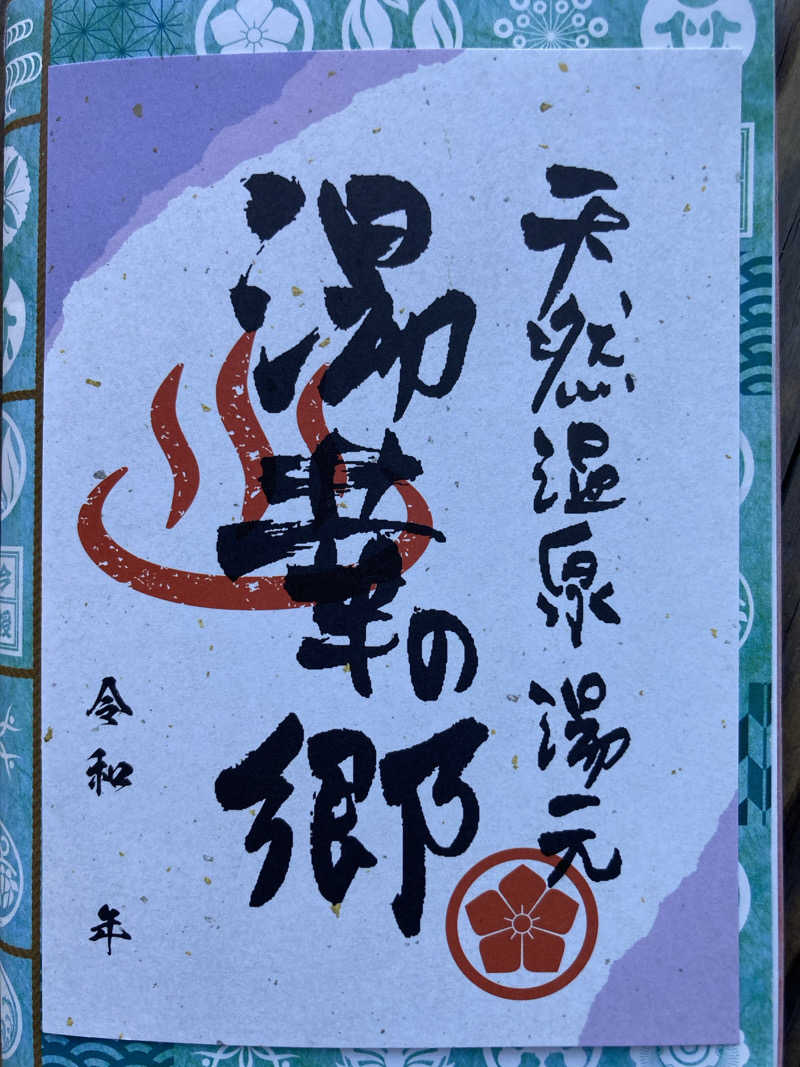 天然温泉 湯元
湯華の郷
令和 年